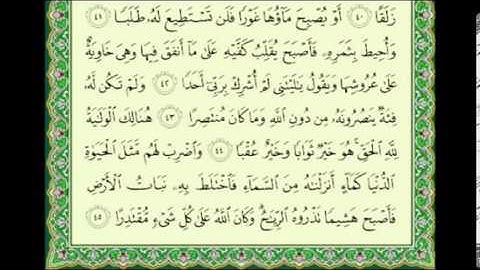 زَلَقًا ٤٠ أَوْ يُصْبِحَ مَآؤُهَا غَوْرًا فَلَن تَسْتَطِيعَ لَهُۥ طَلَبًا ٤١
وَأُحِيطَ بِثَمَرِهِۦ فَأَصْبَحَ يُقَلِّبُ كَفَّيْهِ عَلَىٰ مَآ أَنفَقَ فِيهَا وَهِىَ خَاوِيَةٌ
عَلَىٰ عُرُوشِهَا وَيَقُولُ يَٰلَيْتَنِى لَمْ أُشْرِكْ بِرَبِّىٓ أَحَدًا ٤٢ وَلَمْ تَكُن لَّهُۥ
فِئَةٌ يَنصُرُونَهُۥ مِن دُونِ ٱللَّهِ وَمَا كَانَ مُنتَصِرًا ٤٣ هُنَالِكَ ٱلْوَلَٰيَةُ
لِلَّهِ ٱلْحَقِّ ۚ هُوَ خَيْرٌ ثَوَابًا وَخَيْرٌ عُقْبًا ٤٤ وَٱضْرِبْ لَهُم مَّثَلَ ٱلْحَيَوٰةِ
ٱلدُّنْيَا كَمَآءٍ أَنزَلْنَٰهُ مِنَ ٱلسَّمَآءِ فَٱخْتَلَطَ بِهِۦ نَبَاتُ ٱلْأَرْضِ
فَأَصْبَحَ هَشِيمًا تَذْرُوهُ ٱلرِّيَٰحُ ۗ وَكَانَ ٱللَّهُ عَلَىٰ كُلِّ شَىْءٍ مُّقْتَدِرًا ٤٥